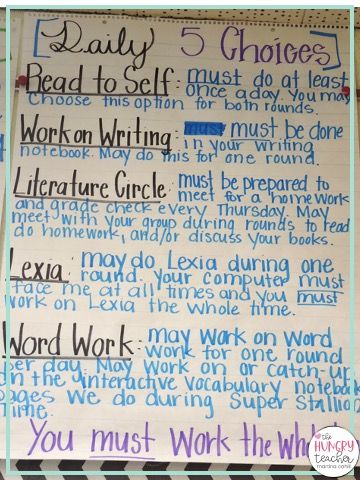 [Daily 5 Choices]
Read to Self: must do at least
once a day. You may
choose this option for both rounds.
Work on Writing: must must be done
in your writing
notebook. May do this for one round.
Literature Circle: must be prepared to
meet for a homework
and grade check every Thursday. May
meet with your group during rounds to read,
do homework, and/or discuss your books.
Lexia: may do Lexia during one
round. Your computer must
face me at all times and you must
work on Lexia the whole time.
Word Work: may work on Word
Work for one round
per day. May work on or catch-up
on the interactive vocabulary notebook
pages we do during Super Stallion
time.
You must work the
the
HUNGRY
teacher